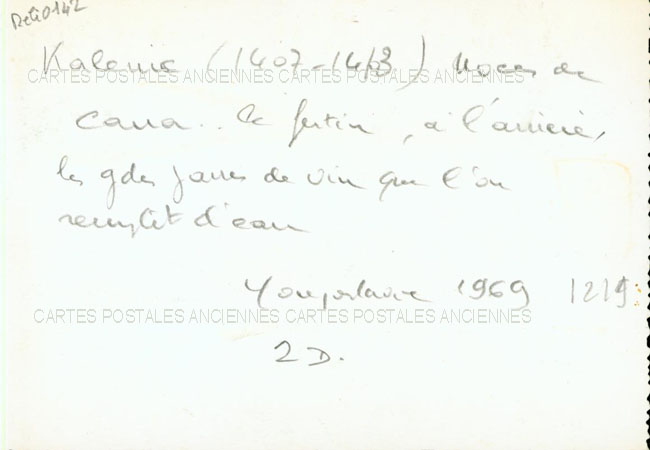 Reli0142
Kalenic (1407-1413) Noces de
CARTES POSTALES ANCIENNES CARTES POSTALES ANCIENNES
Cana.. le festin, à l'arrière,
les gdes jarres de vin que l'on
remplit d'eau
Yougoslavie 1969 1219
CARTES POSTALES ANCIENNES CARTES POSTALES ANCIENNES
2 D.